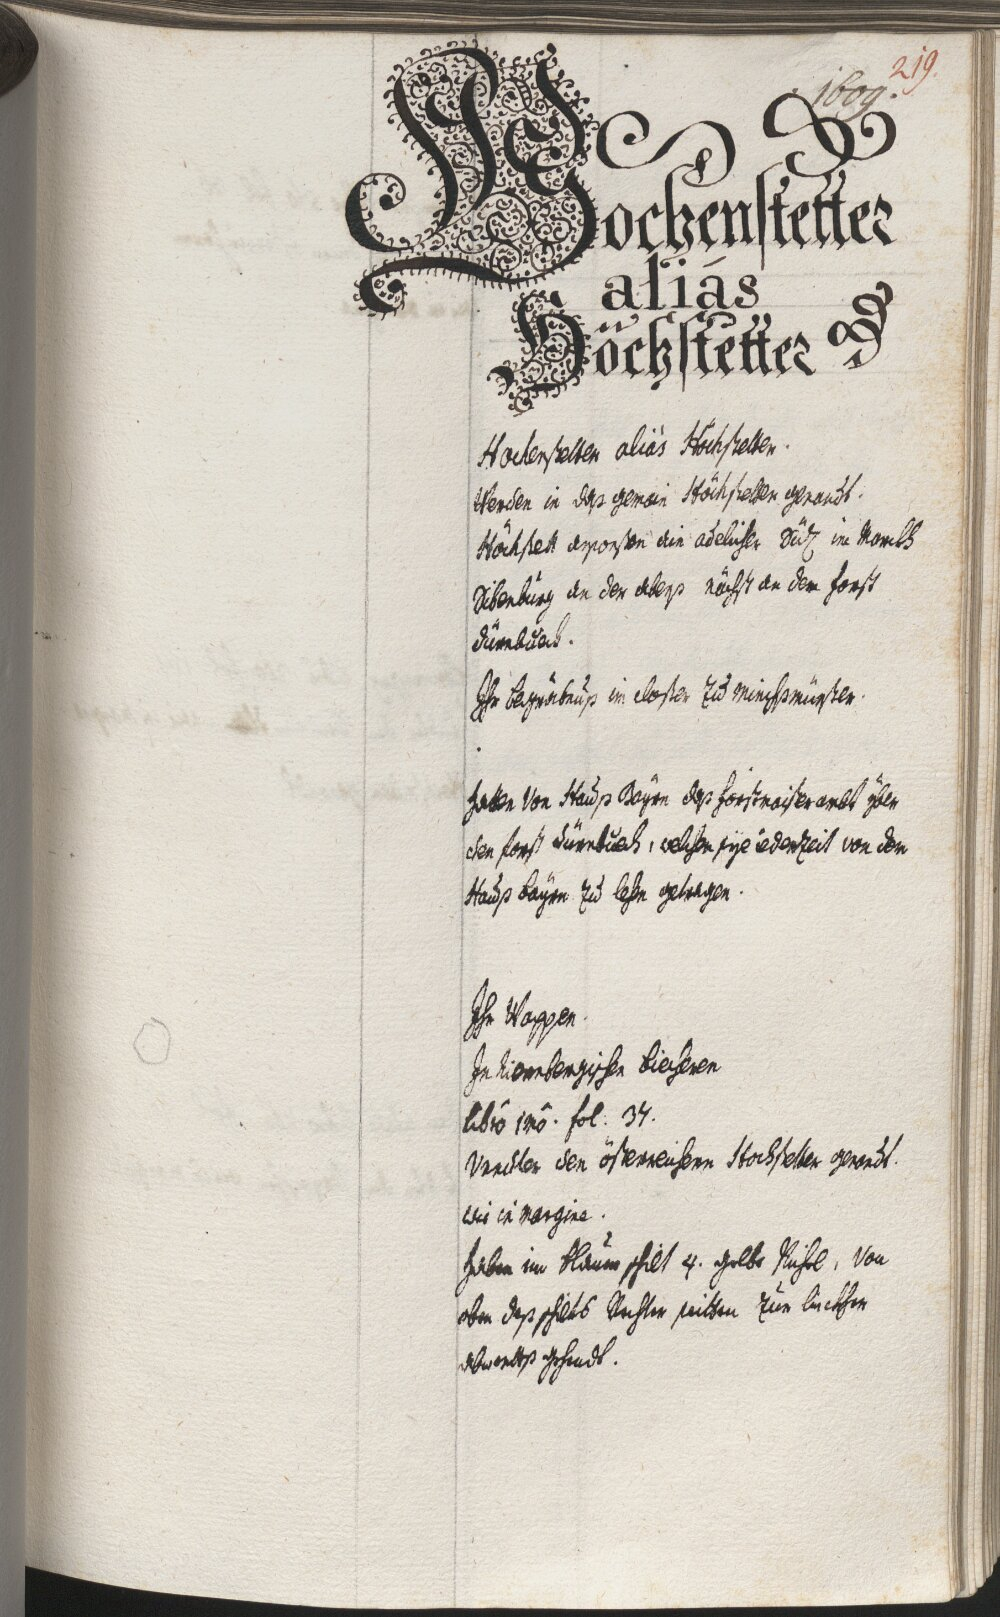 219.
1609.
Hochenstetter
aliàs
Höchstetter
Hochenstetter aliàs Höchstetter.
Werden in dass gemain Höchstetter genandt.
Höchstett gewesen ein adelicher Süz im Marckh
Sibenburg an der abens nächst an dem forst
dürnbuech.
Ihr begräbnuss im closter zu Minchsmünster.
haben von Hauss Bayrn dass forstmaisterambt yber
den forst dürnbuech, welchen sye iederzeit von dem
Hauss bayrn zu lehen getragen.
Ihr Wappen.
In Nürnbergischen biecheren
libro 1mo. fol: 37.
Undter den österreichern Hochstetter genandt.
wie in margine.
haben im blauen schilt 4. gelbe, von
oben dess schilts Rechter seitten zur linckhen
abwerts gehendt.